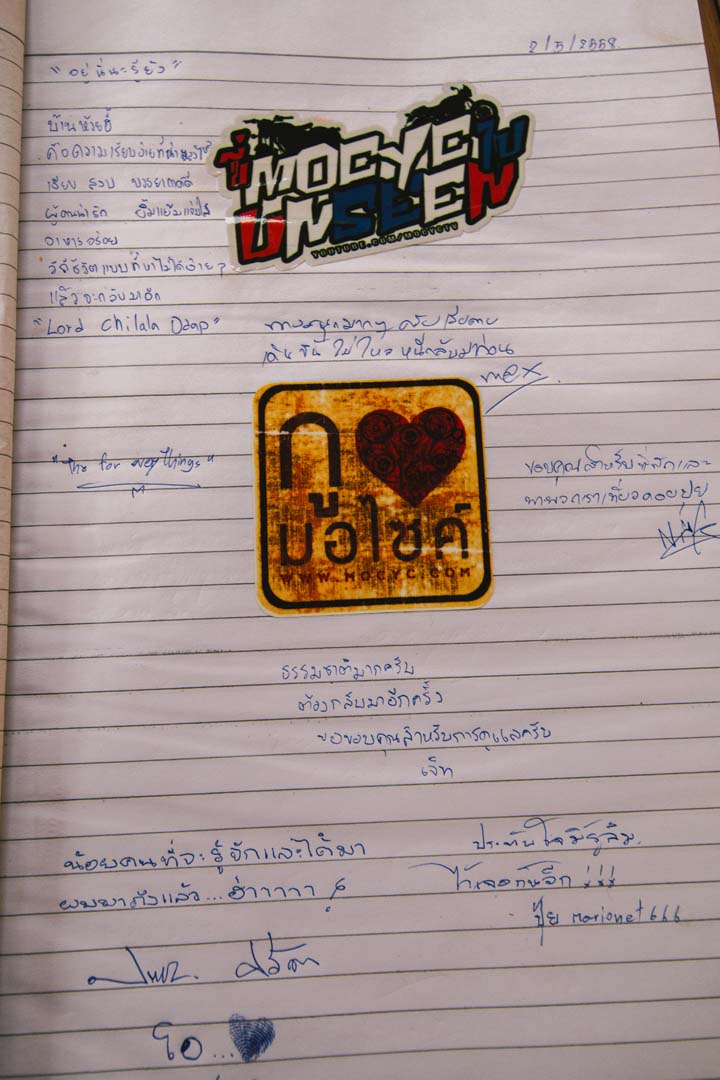 2/5/2558
"อยู่นี่นะรู้ยัง"
บ้านห้วยขี้
คือความเรียบง่ายที่
เงียบ สงบ บรรยากาศดี
ผู้คนน่ารัก ยิ้มแย้มแจ่มใส
อาหารอร่อย
วิถีชีวิตแบบที่หาไม่ได้ง่ายๆ
แล้วจะกลับมาอีก
"Lord Chilala Ddap"
ขี่ MOCYC ไป
UNSEEN
YOUTUBE.COM/MOCYCTV
ครับ เสียดาย
เดินขึ้นไม่ไหว หนีกลับมาก่อน
mex
กู
มอไซค์
WWW.MOCYC.COM
for Things"
ขอบคุณสำหรับที่พักและ
พาพวกเราเที่ยวดอยปุย
Nik
ธรรมชาติมากครับ
ต้องกลับมาอีกครั้ง
ขอขอบคุณสำหรับการดูแลครับ
เจ็ท
น้อยคนที่จะรู้จักและได้มา
ผมมาถึงแล้ว...ฮ่าาาาา
ประทับใจมิรู้ลืม.
ไว้เจอกันอีก !!!
ปุ้ย marionet666
โอ...